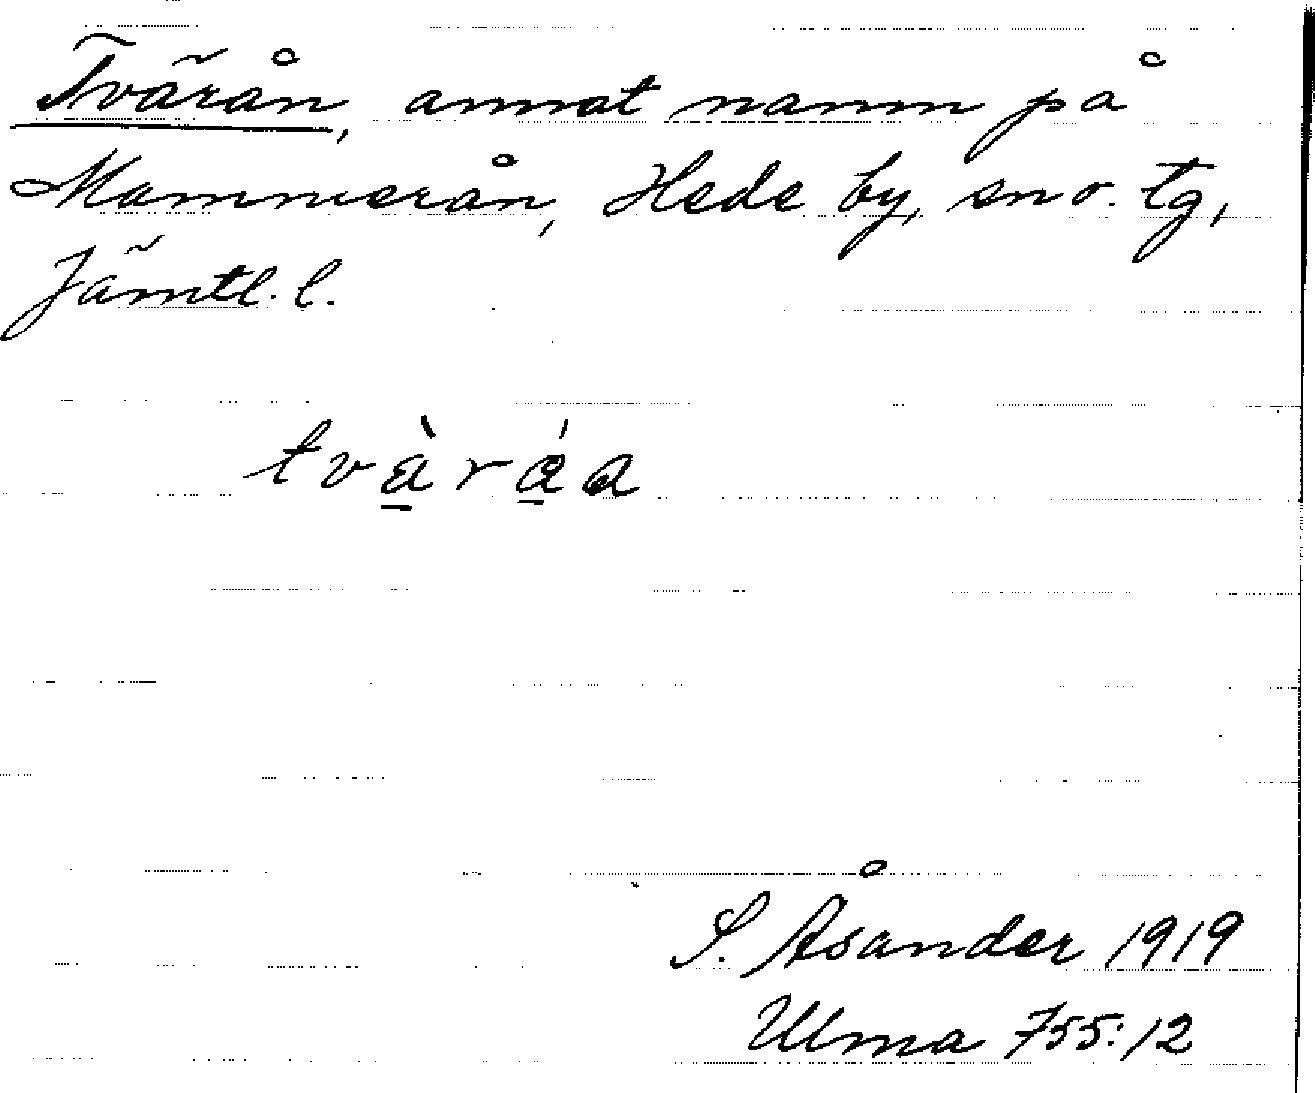 Tvärån, annat namn på
Mammerån, Hede by, sn o. tg,
Jämtl. l.
tvä̀rá̠a
S. Åsander 1919
Ulma 755:12